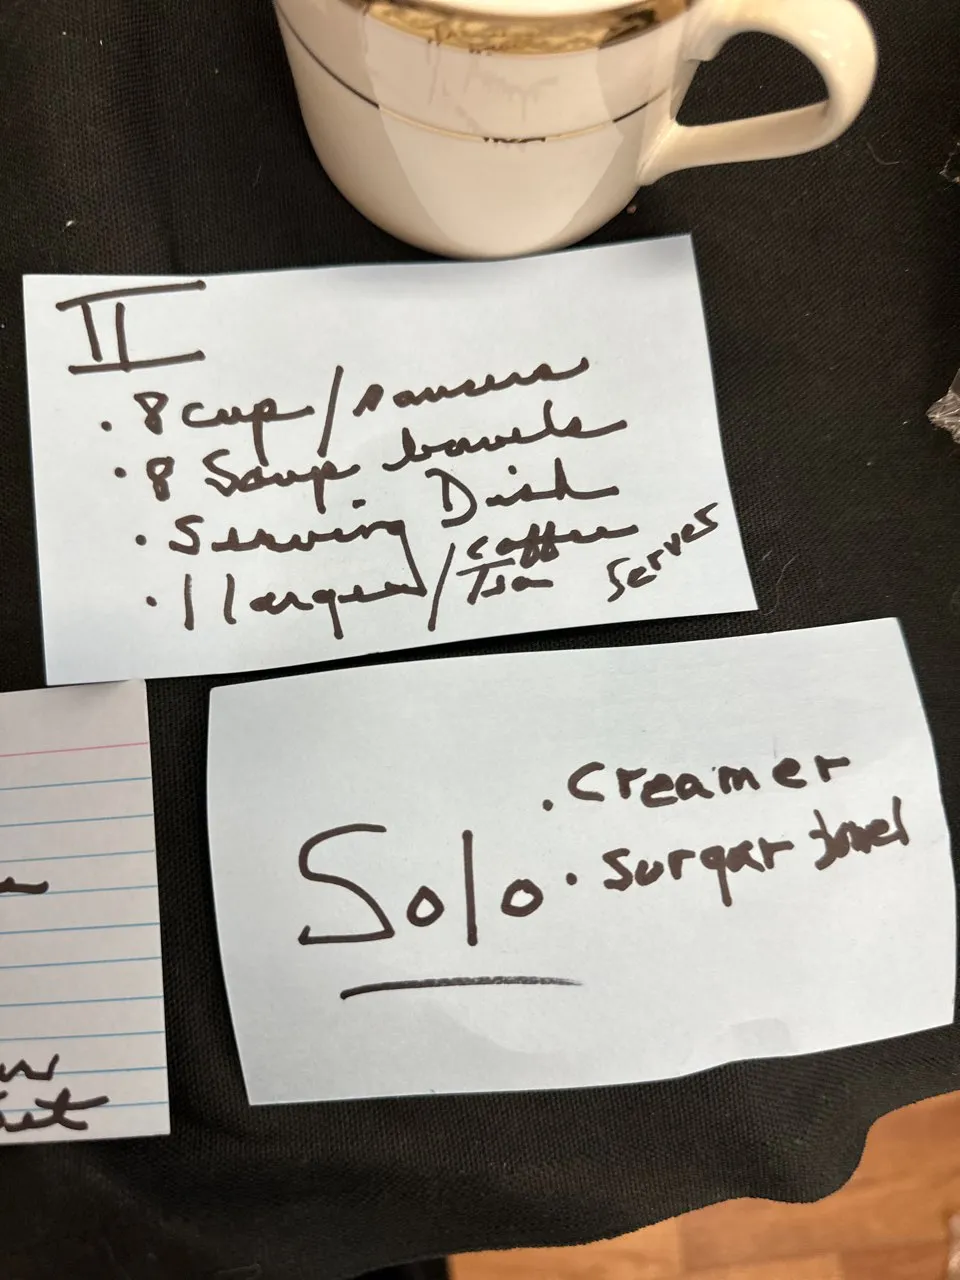 II
· 8 cup/saucers
· 8 Soup bowls
· Serving Dish
· 1 large /coffee Server
Tea
Solo
· Creamer
· Surgar bowel